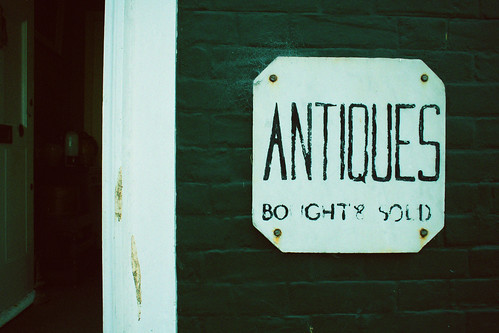 ANTIQUES
BOUGHT & SOLD